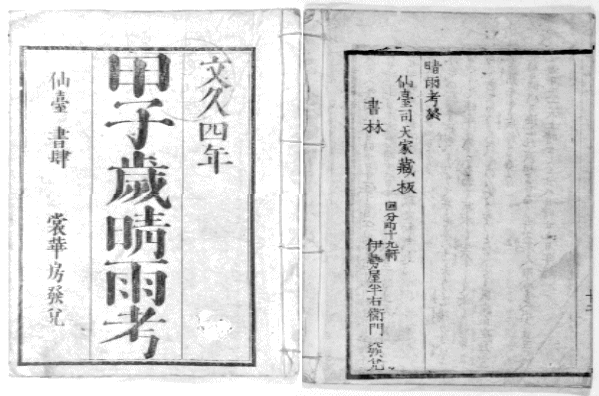 文久四年
甲子歳晴雨考
仙臺 書肆 裳華房發兌
晴雨考終
仙臺司天家藏板
書林
國分町十九軒
伊勢屋半右衛門 發兌
十二